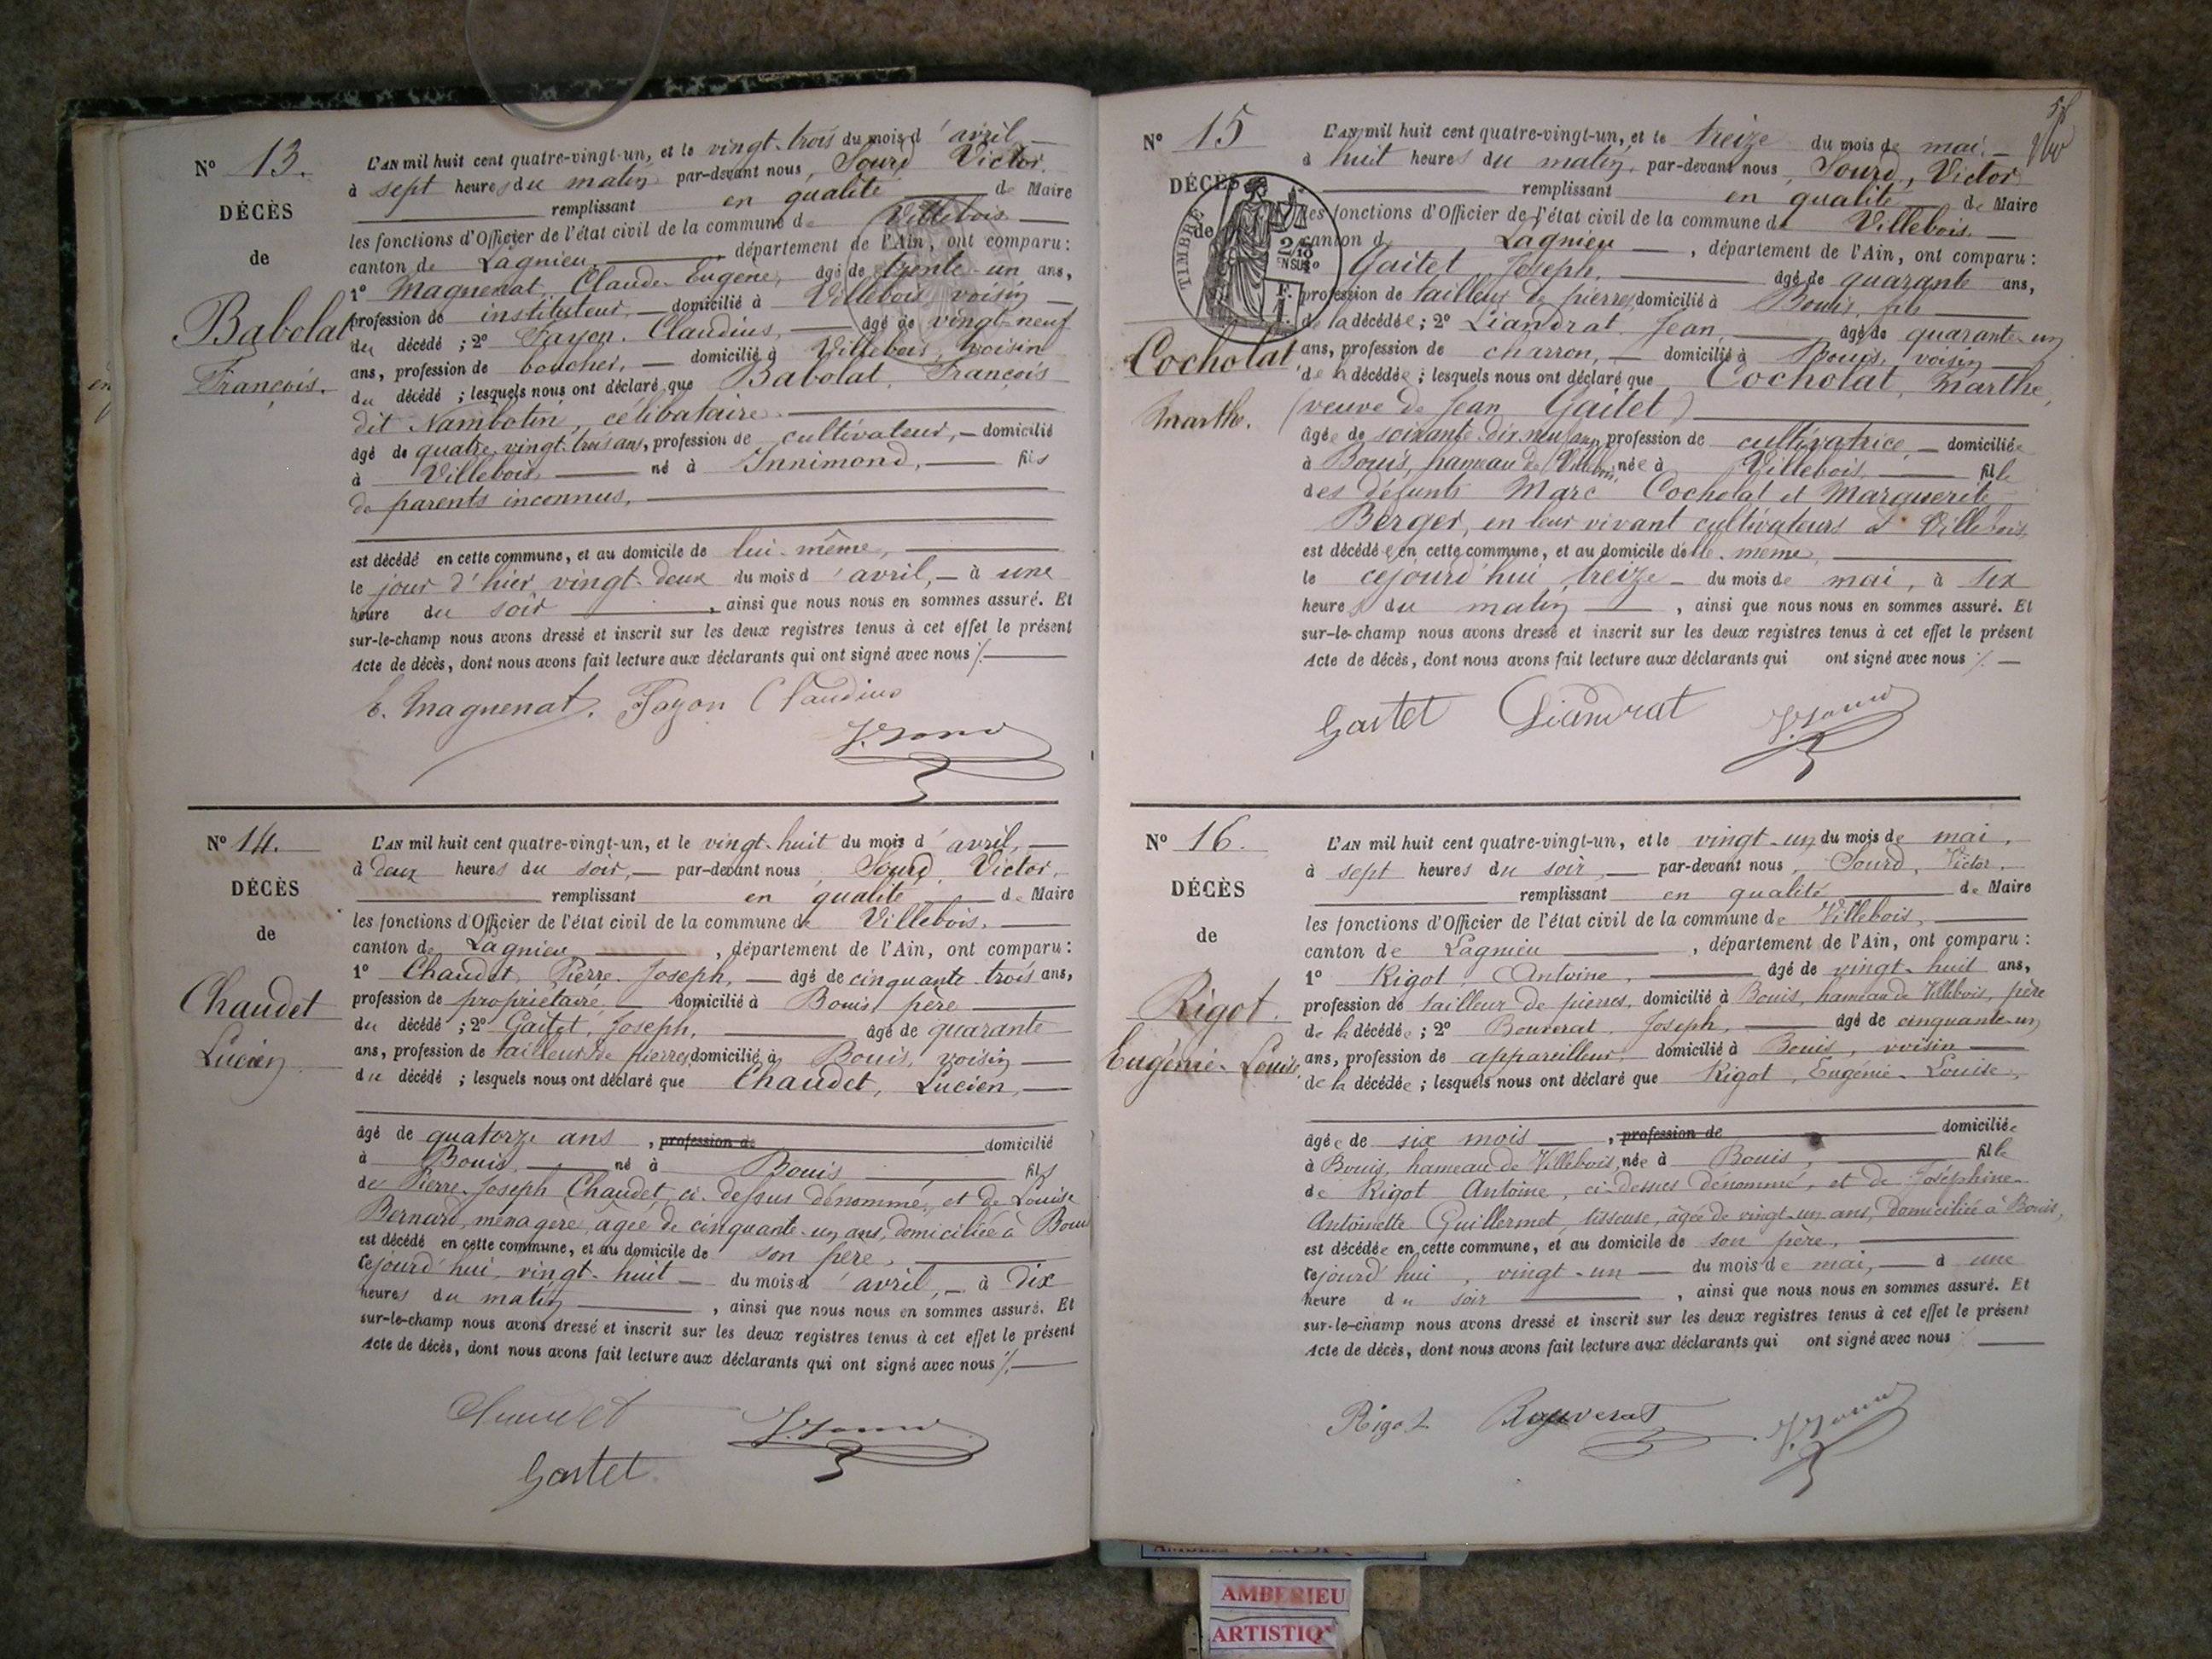 N° 13.
DÉCÈS
de
Babolat
François.
L'AN mil huit cent quatre-vingt-un, et le vingt-trois du mois d'avril —
à sept heures du matin par-devant nous, Sourd Victor.
remplissant en qualité de Maire
les fonctions d'Officier de l'état civil de la commune de Villebois
canton de Lagnieu, département de l'Ain, ont comparu :
1° Magnenat, Claude-Eugène, âgé de trente-un ans,
profession de instituteur, — domicilié à Villebois voisin —
du décédé ; 2° Fayon, Claudius, — âgé de vingt-neuf
ans, profession de boucher, — domicilié à Villebois, voisin
du décédé ; lesquels nous ont déclaré que Babolat, François
dit Nambotin, célibataire
âgé de quatre-vingt-trois ans, profession de cultivateur, — domicilié
à Villebois né à Innimond, — fils
de parents inconnus,
est décédé en cette commune, et au domicile de lui-même,
le jour d'hier vingt-deux du mois d'avril, — à une
heure du soir, ainsi que nous nous en sommes assuré. Et
sur-le-champ nous avons dressé et inscrit sur les deux registres tenus à cet effet le présent
Acte de décès, dont nous avons fait lecture aux déclarants qui ont signé avec nous ./.
E. Magnenat. Fayon Claudius
V. Sourd
N° 14.
DÉCÈS
de
Chaudet
Lucien
L'AN mil huit cent quatre-vingt-un, et le vingt-huit du mois d'avril, —
à deux heures du soir, — par-devant nous, Sourd, Victor,
remplissant en qualité de Maire
les fonctions d'Officier de l'état civil de la commune de Villebois,
canton de Lagnieu, département de l'Ain, ont comparu :
1° Chaudet, Pierre-Joseph, — âgé de cinquante-trois ans,
profession de propriétaire domicilié à Bouis, père
du décédé ; 2° Gaitet, Joseph, âgé de quarante
ans, profession de tailleur de pierres, domicilié à Bouis, voisin
du décédé ; lesquels nous ont déclaré que Chaudet, Lucien, —
âgé de quatorze ans, profession de domicilié
à Bouis, né à Bouis fils
de Pierre-Joseph Chaudet, ci-dessus dénommé, et de Louise
Bernard, ménagère, âgée de cinquante-un ans, domiciliée à Bouis
est décédé en cette commune, et au domicile de son père,
cejourd'hui, vingt-huit — du mois d'avril, — à dix
heures du matin, ainsi que nous nous en sommes assuré. Et
sur-le-champ nous avons dressé et inscrit sur les deux registres tenus à cet effet le présent
Acte de décès, dont nous avons fait lecture aux déclarants qui ont signé avec nous ./.
Chaudet V. Sourd
Gaitet
N° 15
DÉCÈS
de
TIMBRE
Cocholat,
Marthe.
L'AN mil huit cent quatre-vingt-un, et le treize du mois de mai, —
à huit heures du matin, par-devant nous, Sourd, Victor
remplissant en qualité de Maire
les fonctions d'Officier de l'état civil de la commune de Villebois —
canton de Lagnieu, département de l'Ain, ont comparu :
1° Gaitet Joseph, âgé de quarante ans,
profession de tailleur de pierres, domicilié à Bouis, fils
de la décédée ; 2° Liandrat, Jean, âgé de quarante-un
ans, profession de charron, — domicilié à Bouis, voisin
de la décédée ; lesquels nous ont déclaré que Cocholat, Marthe,
(veuve de Jean Gaitet)
âgée de soixante-dix-neuf ans, profession de cultivatrice, — domiciliée
à Bouis, hameau de Villebois, née à Villebois, fille
des défunts Marc Cocholat et Marguerite
Berger, en leur vivant cultivateurs à Villebois,
est décédée en cette commune, et au domicile d'elle-même,
le cejourd'hui treize — du mois de mai, à six
heures du matin, ainsi que nous nous en sommes assuré. Et
sur-le-champ nous avons dressé et inscrit sur les deux registres tenus à cet effet le présent
Acte de décès, dont nous avons fait lecture aux déclarants qui ont signé avec nous ./. —
Gaitet Liandrat V. Sourd
N° 16.
DÉCÈS
de
Rigot.
Eugénie-Louise,
L'AN mil huit cent quatre-vingt-un, et le vingt-un du mois de mai,
à sept heures du soir, — par-devant nous, Sourd, Victor,
remplissant en qualité de Maire
les fonctions d'Officier de l'état civil de la commune de Villebois,
canton de Lagnieu, département de l'Ain, ont comparu :
1° Rigot, Antoine, âgé de vingt-huit ans,
profession de tailleur de pierres, domicilié à Bouis, hameau de Villebois, père
de la décédée ; 2° Bouverat, Joseph, âgé de cinquante-un
ans, profession de appareilleur, domicilié à Bouis, voisin —
de la décédée ; lesquels nous ont déclaré que Rigot, Eugénie-Louise,
âgée de six mois, profession de domiciliée
à Bouis, hameau de Villebois, née à Bouis, fille
de Rigot Antoine, ci-dessus dénommé, et de Joséphine-
Antoinette Guillermet, tisseuse, âgée de vingt-un ans, domiciliée à Bouis,
est décédée en cette commune, et au domicile de son père,
cejourd'hui, vingt-un — du mois de mai, — à une
heure du soir, ainsi que nous nous en sommes assuré. Et
sur-le-champ nous avons dressé et inscrit sur les deux registres tenus à cet effet le présent
Acte de décès, dont nous avons fait lecture aux déclarants qui ont signé avec nous
Rigot Bouverat V. Sourd
AMBERIEU
ARTISTIQ